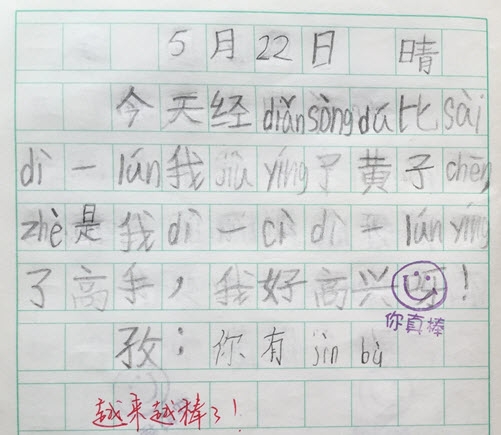 5月22日 晴
今天经diǎnsòngdá比sài
dì一lún我jiù yíng了黄子chén,
zhè是我dì一cì dì一lún yíng
了高手，我好高兴呀！
你真棒
孜：你有jìn bù
越来越棒了！